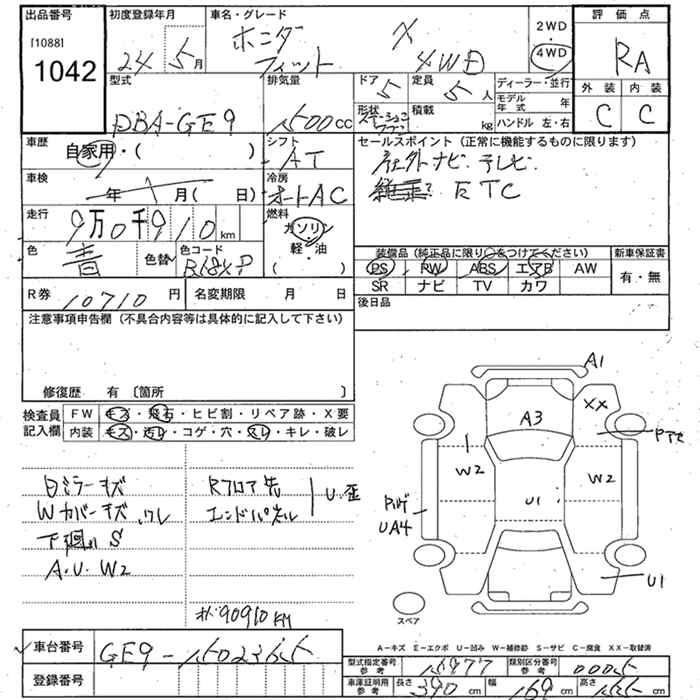 出品番号 初度登録年月 車名・グレード 評価点
[1088]
1042
24 5月
ホンダ フィット X 4WD
2WD
4WD
RA
外装 内装
C C
型式 排気量 ドア 定員 ディーラー・並行
DBA-GE9 1500cc 5 5人
モデル年式 年
形状 ステーションワゴン 積載 kg ハンドル 左・右
車歴 自家用・( )
シフト AT
セールスポイント (正常に機能するものに限ります)
ナビ・テレビ・
ETC
車検 年 月( 日)
冷房 オートAC
走行 9万0千910km
燃料 ガソリン 軽・油 ( )
色 青 色替 色コード B184P
装備品 (純正品に限り○をつけてください) 新車保証書
PS PW ABS エアB AW 有・無
SR ナビ TV カワ
R券 10710円 名変期限 月 日
後日品
注意事項申告欄 (不具合内容等は具体的に記入して下さい)
修復歴 有 〔箇所 〕
検査員記入欄
FW キズ・飛石・ヒビ割・リペア跡・X要
内装 キズ・汚レ・コゲ・穴・スレ・キレ・破レ
A1
A3
XX
W2
W2
U1
UA4
U1
スペア
ミラーキズ
Wカバーキズ.ワレ
下廻り S
A.U.W2
Rフロア先
エンドパネル
U.歪
90910KM
A-キズ E-エクボ U-凹み W-補修跡 S-サビ C-腐食 XX-取替済
車台番号 GE9-1502355
登録番号
型式指定番号 参考 15977 類別区分番号 参考 0005
車庫証明用 参考 長さ 390cm 幅 169cm 高さ 155cm